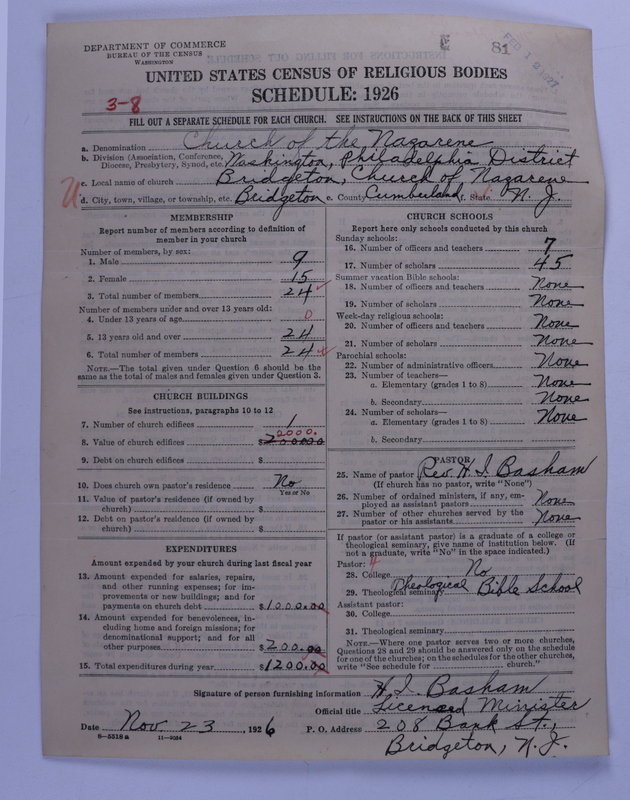 DEPARTMENT OF COMMERCE
BUREAU OF THE CENSUS
WASHINGTON
81
UNITED STATES CENSUS OF RELIGIOUS BODIES
SCHEDULE: 1926
3-8
FILL OUT A SEPARATE SCHEDULE FOR EACH CHURCH. SEE INSTRUCTIONS ON THE BACK OF THIS SHEET
a. Denomination Church of the Nazarene
b. Division (Association, Conference, Diocese, Presbytery, Synod, etc. Washington, Philadelphia District
c. Local name of church Bridgeton, Church of Nazarene
d. City, town, village, or township, etc. Bridgeton e. County Cumberland f. State N. J.
MEMBERSHIP
Report number of members according to definition of
member in your church
Number of members, by sex:
1. Male 9
2. Female 15
3. Total number of members 24
Number of members under and over 13 years old:
4. Under 13 years of age 0
5. 13 years old and over 24
6. Total number of members 24
NOTE.—The total given under Question 6 should be the
same as the total of males and females given under Question 3.
CHURCH BUILDINGS
See instructions, paragraphs 10 to 12
7. Number of church edifices 1
2000.
8. Value of church edifices $200000
9. Debt on church edifices $
10. Does church own pastor's residence? No
Yes or No
11. Value of pastor's residence (if owned by
church) $
12. Debt on pastor's residence (if owned by
church) $
EXPENDITURES
Amount expended by your church during last fiscal year
13. Amount expended for salaries, repairs,
and other running expenses; for im-
provements or new buildings; and for
payments on church debt $1000.00
14. Amount expended for benevolences, in-
cluding home and foreign missions; for
denominational support; and for all
other purposes $200.00
15. Total expenditures during year $1200.00
CHURCH SCHOOLS
Report here only schools conducted by this church
Sunday schools:
16. Number of officers and teachers 7
17. Number of scholars 45
Summer vacation Bible schools:
18. Number of officers and teachers None
19. Number of scholars None
Week-day religious schools:
20. Number of officers and teachers None
21. Number of scholars None
Parochial schools:
22. Number of administrative officers None
23. Number of teachers—
a. Elementary (grades 1 to 8) None
b. Secondary None
24. Number of scholars—
a. Elementary (grades 1 to 8) None
b. Secondary
PASTOR
25. Name of pastor Rev. H. I. Basham
(If church has no pastor, write "None")
26. Number of ordained ministers, if any, em-
ployed as assistant pastors None
27. Number of other churches served by the
pastor or his assistants None
If pastor (or assistant pastor) is a graduate of a college or
theological seminary, give name of institution below. (If
not a graduate, write "No" in the space indicated.)
Pastor:
28. College No
29. Theological seminary Theological Bible School
Assistant pastor:
30. College
31. Theological seminary
NOTE.—Where one pastor serves two or more churches,
Questions 28 and 29 should be answered only on the schedule
for one of the churches; on the schedules for the other churches,
write "See schedule for church."
Signature of person furnishing information H. I. Basham
Official title Licensed Minister
Date Nov. 23, 1926 P. O. Address 208 Bank St.,
8-5518a 11-9034
Bridgeton, N. J.